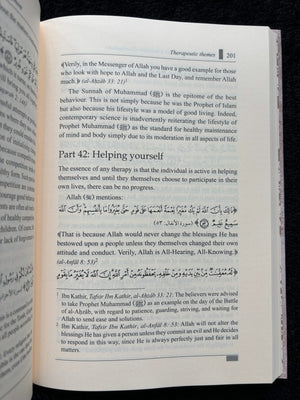 Therapeutic themes 201
﴾Verily, in the Messenger of Allah you have a good example for those
who look with hope to Allah and the Last Day, and remember Allah
much.﴿ (al-Aḥzâb 33: 21)¹
The Sunnah of Muhammad (ﷺ) is the epitome of the best
behaviour. This is not simply because he was the Prophet of Islam
but also because his lifestyle was a model of good living. Indeed,
contemporary science is inadvertently reiterating the lifestyle of
Prophet Muhammad (ﷺ) as the standard for healthy maintenance
of mind and body simply due to its moderation in all aspects of life.
Part 42: Helping yourself
The essence of any therapy is that the individual is active in helping
themselves and until they themselves choose to participate in their
own lives, there can be no progress.
Allah (ﷻ) mentions:
﴿ذَٰلِكَ بِأَنَّ ٱللَّهَ لَمْ يَكُ مُغَيِّرًا نِّعْمَةً أَنْعَمَهَا عَلَىٰ قَوْمٍ حَتَّىٰ يُغَيِّرُوا۟ مَا بِأَنفُسِهِمْ وَأَنَّ ٱللَّهَ
سَمِيعٌ عَلِيمٌ ۝﴾ (سورة الأنفال: ٥٣)
﴾That is because Allah would never change the blessings He has
bestowed upon a people unless they themselves changed their own
attitude and conduct. Verily, Allah is All-Hearing, All-Knowing.﴿
(al-Anfâl 8: 53)²
﴿لَهُۥ مُعَقِّبَٰتٌ مِّنۢ بَيْنِ يَدَيْهِ وَمِنْ خَلْفِهِۦ يَحْفَظُونَهُۥ مِنْ أَمْرِ ٱللَّهِ إِنَّ ٱللَّهَ لَا يُغَيِّرُ مَا بِقَوْمٍ
¹ Ibn Kathir, Tafsir Ibn Kathir, al-Aḥzâb 33: 21: The believers were advised
to take Prophet Muhammad (ﷺ) as an example on the day of the Battle
of al-Aḥzâb, with regard to patience, guarding, striving, and waiting for
Allah to send ease and solutions.
² Ibn Kathir, Tafsir Ibn Kathir, al-Anfâl 8: 53: Allah will not alter the
blessings He has given a person unless they commit an evil and He decides
in accordance to this sin, since He is always perfectly just and fair in all
matters.